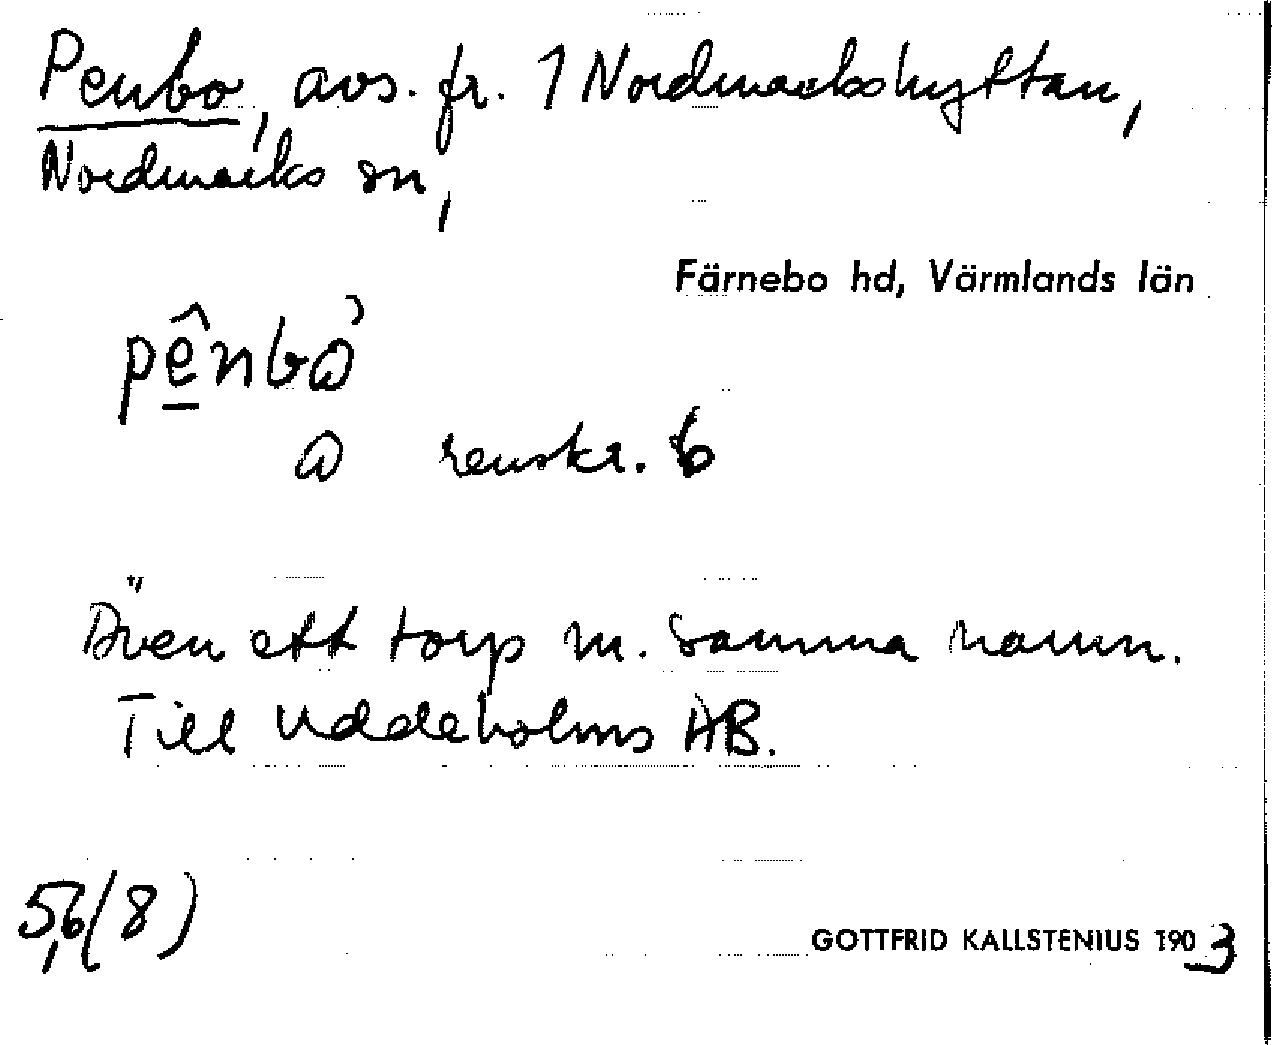 Penbo, avs. fr. 1 Nordmarkshyttan,
Nordmarks sn,
Färnebo hd, Värmlands län
pê̱nbò
renskr. 6
Även ett torp m. samma namn.
Till Uddeholms AB.
5,6(8)
GOTTFRID KALLSTENIUS 1903